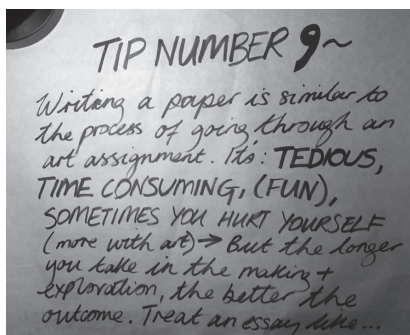 TIP NUMBER 9~
Writing a paper is similar to
the process of going through an
art assignment. It's: TEDIOUS,
TIME CONSUMING, (FUN),
SOMETIMES YOU HURT YOURSELF
(more with art) → But the longer
you take in the making +
exploration, the better the
outcome. Treat an essay like...